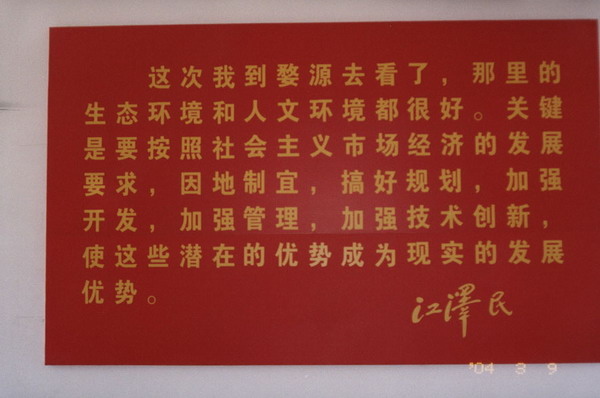 这次我到婺源去看了，那里的
生态环境和人文环境都很好。关键
是要按照社会主义市场经济的发展
要求，因地制宜，搞好规划，加强
开发，加强管理，加强技术创新，
使这些潜在的优势成为现实的发展
优势。
江澤民
'04 3 9